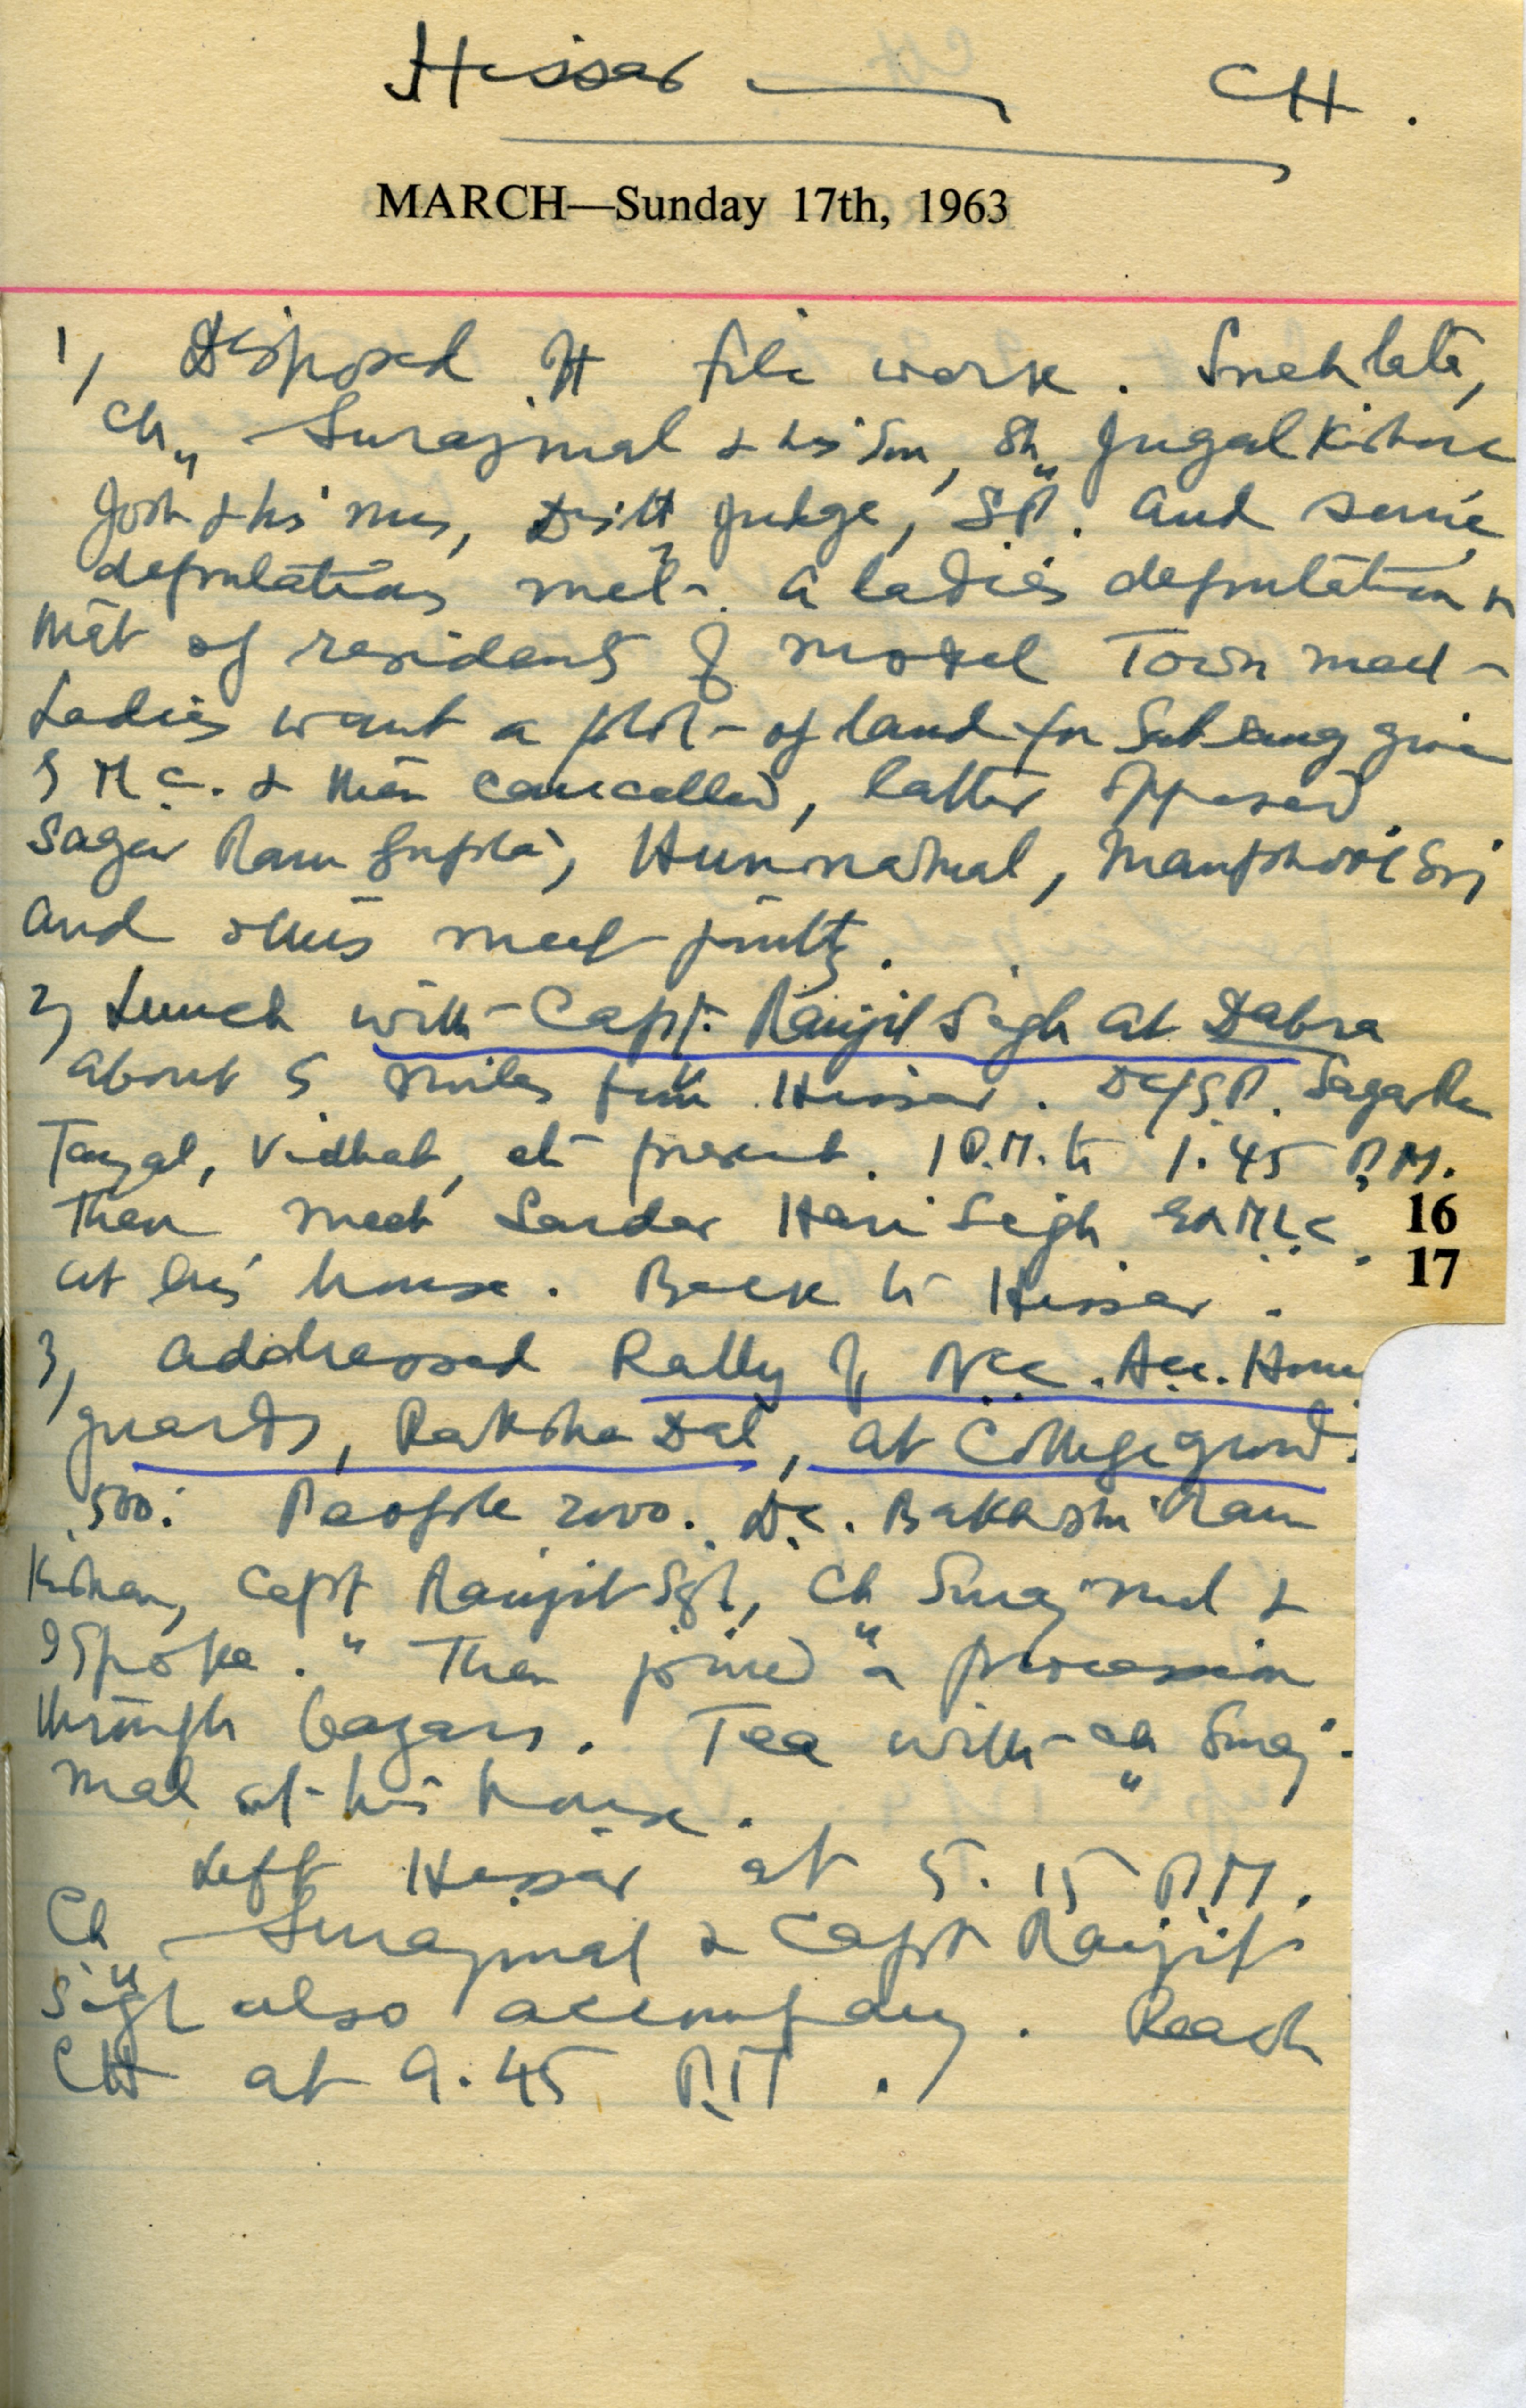 Hissar — CH.
MARCH—Sunday 17th, 1963
1, Disposed off file work. Snehlata,
Ch,, Surajmal & his son, Sh,, Jugal Kishore
Josh & his, Distt Judge, S.P. and some
deputations met. A ladies deputation &
that of residents of Model Town meet-
Ladies want a plot of land for Satsang given
by M.C. & then cancelled, latter opposed.
Sagar Ram Gupta,
and others meet jointly.
2, Lunch with Capt. Ranjit Singh at Dabra
about 5 miles from Hissar. Dy S.P. Sagar Ram
Tayal, etc present. 1 P.M. to 1.45 P.M.
16
Then meet Sardar Hari Singh Ex M.L.C.
17
at his house. Back to Hissar.
3, Addressed Rally of N.C.C. A.C.C. Home
guards, Raksha Dal, at College ground.
500. People 2000. D.C. Bakhshi Ram
Kishan, Capt Ranjit Sgh, Ch,, Surajmal &
I spoke. Then joined a procession
through bazars. Tea with Ch,, Suraj-
mal at his house.
Left Hissar at 5.15 P.M.
Ch,, Surajmal & Capt Ranjit
Singh also accompany. Reach
CH at 9.45 P.M.